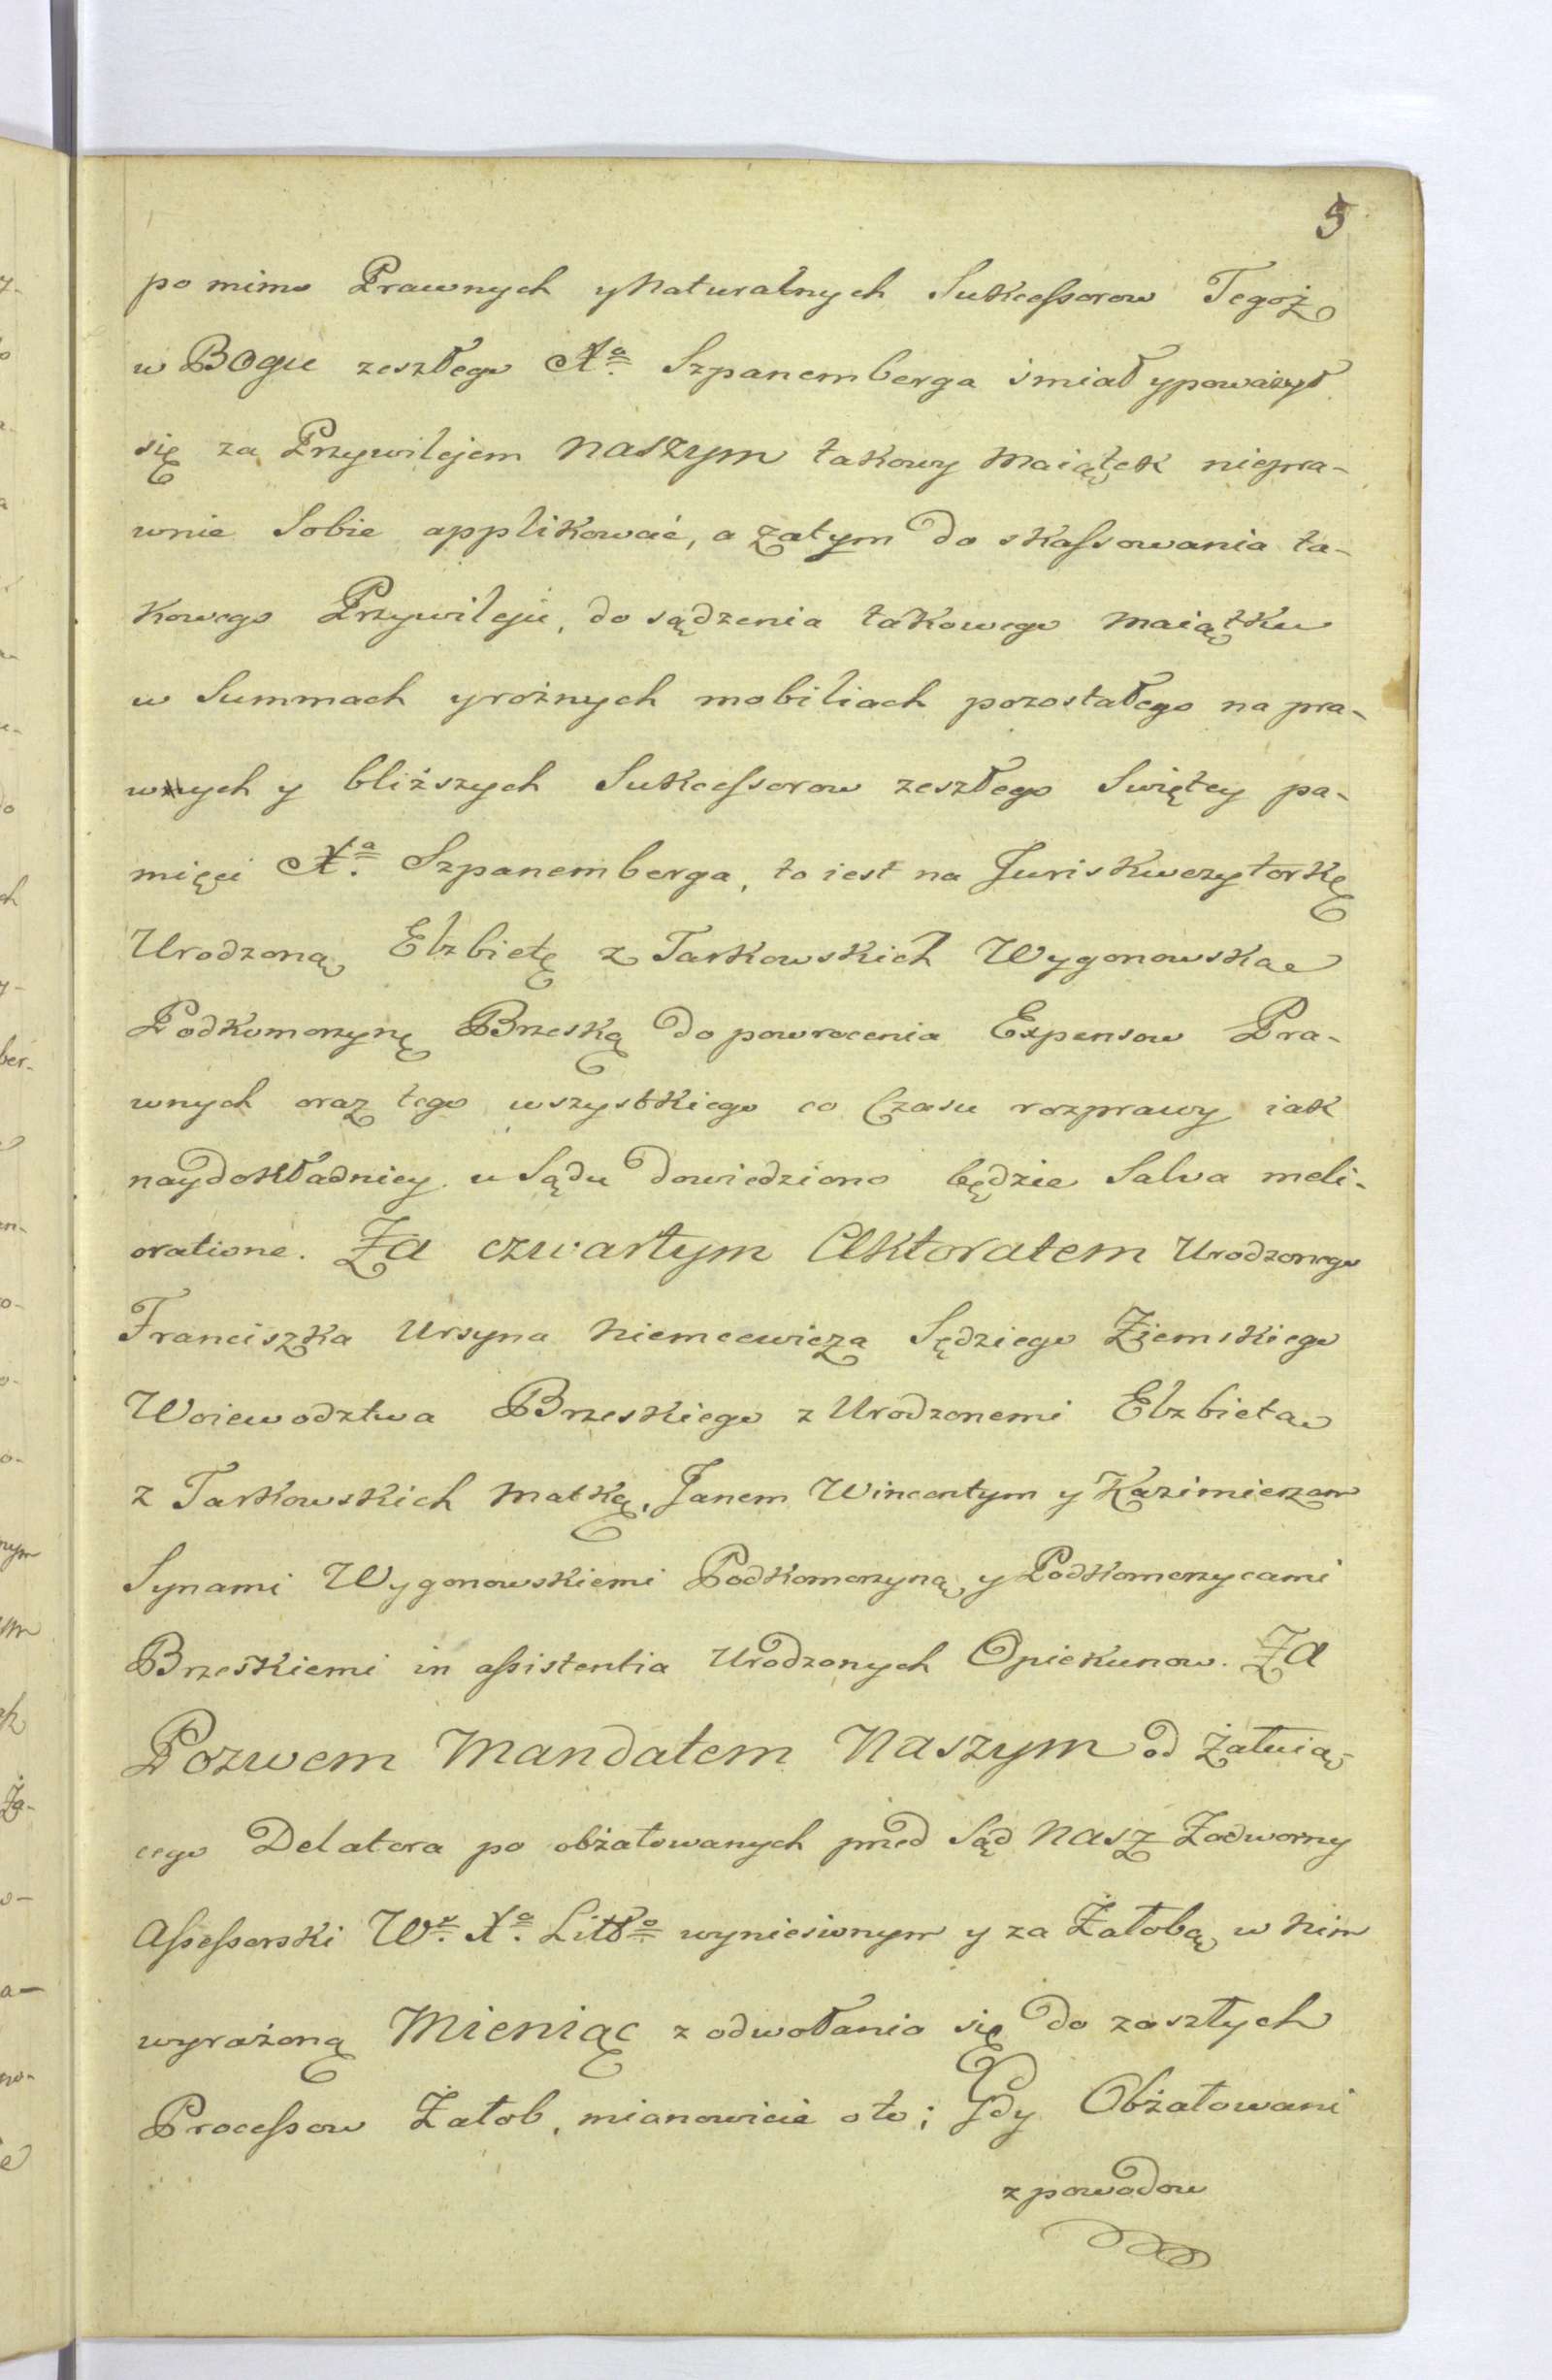 5
po mimo Prawnych y Naturalnych Sukcessorow Tegoż
w Bogu zeszłego Xa. Szpanemberga śmiał y poważył
się za Przywilejem Naszym takowy Maiątek niepra-
wnie Sobie applikować, a zatym do skassowania ta-
kowego Przywileju, do sądzenia takowego Maiątku
w Summach y rożnych mobiliach pozostałego na pra-
wnych y bliższych Sukcessorow zeszłego Swiętey pa-
mięci Xa. Szpanemberga, to iest na Juriskwezytorkę
Urodzoną Elzbietę z Tarkowskich Wygonowską
Podkomorzynę Brzeską do powrocenia Expensow Pra-
wnych oraz tego wszystkiego co Czasu rozprawy iak
naydokładniey u Sądu dowiedziono będzie Salva meli-
oratione. Za czwartym Aktoratem Urodzonego
Franciszka Ursyna Niemcewicza Sędziego Ziemskiego
Woiewodztwa Brzeskiego z Urodzonemi Elzbietą
z Tarkowskich Matką, Janem Wincentym y Kazimierzem
Synami Wygonowskiemi Podkomorzyną y Podkomorzycami
Brzeskiemi in assistentia Urodzonych Opiekunow. Za
Pozwem Mandatem Naszym od Żałuią-
cego Delatora po obżałowanych przed Sąd Nasz Zadworny
Assessorski Wo. Xa. Litto. wyniesionym y za Żałobą w Nim
wyrażoną Mieniąc z odwołania się do zaszłych
Processow Żałob, mianowicie oto; Gdy Obżałowani
z powodow